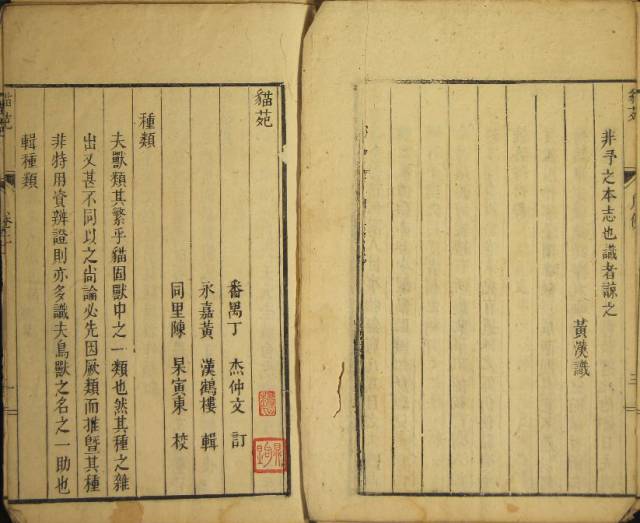 非予之本志也識者諒之
黃漢識
貓苑
番禺丁　杰仲文　訂
永嘉黃　漢鶴樓　輯
同里陳　杲寅東　校
種類
夫獸類其繁乎貓固獸中之一類也然其種之雜
出又甚不同以之尚論必先因厥類而推暨其種
非特用資辨證則亦多識夫鳥獸之名之一助也
輯種類
貓苑